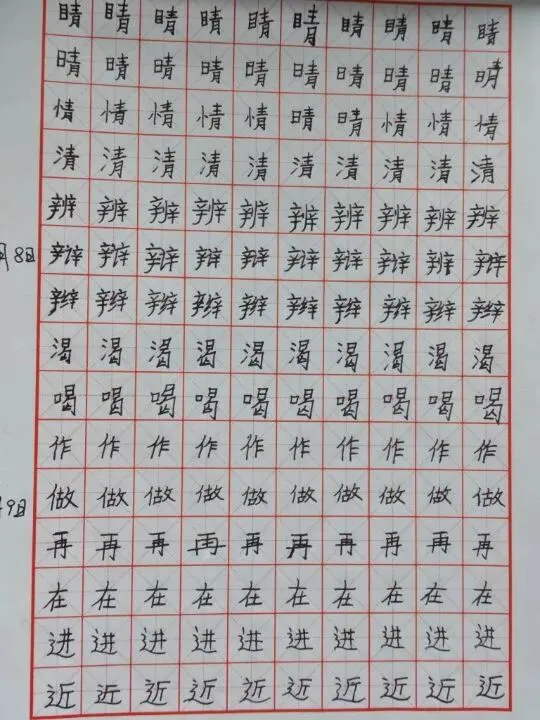 睛睛睛睛睛睛睛睛睛睛
晴晴晴晴晴晴晴晴晴晴
情情情情情晴晴情情情
清清清清清清清清清清
辨辨辨辨辨辨辨辨辨辨
月8日
辩辩辩辩辩辩辩辩辩辩
辫辫辫辫辫辫辫辫辫辫
渴渴渴渴渴渴渴渴渴渴
喝喝喝喝喝喝喝喝喝喝
作作作作作作作作作作
做做做做做做做做做做
9日
再再再再再再再再再再
在在在在在在在在在在
进进进进进进进进进进
近近近近近近近近近近